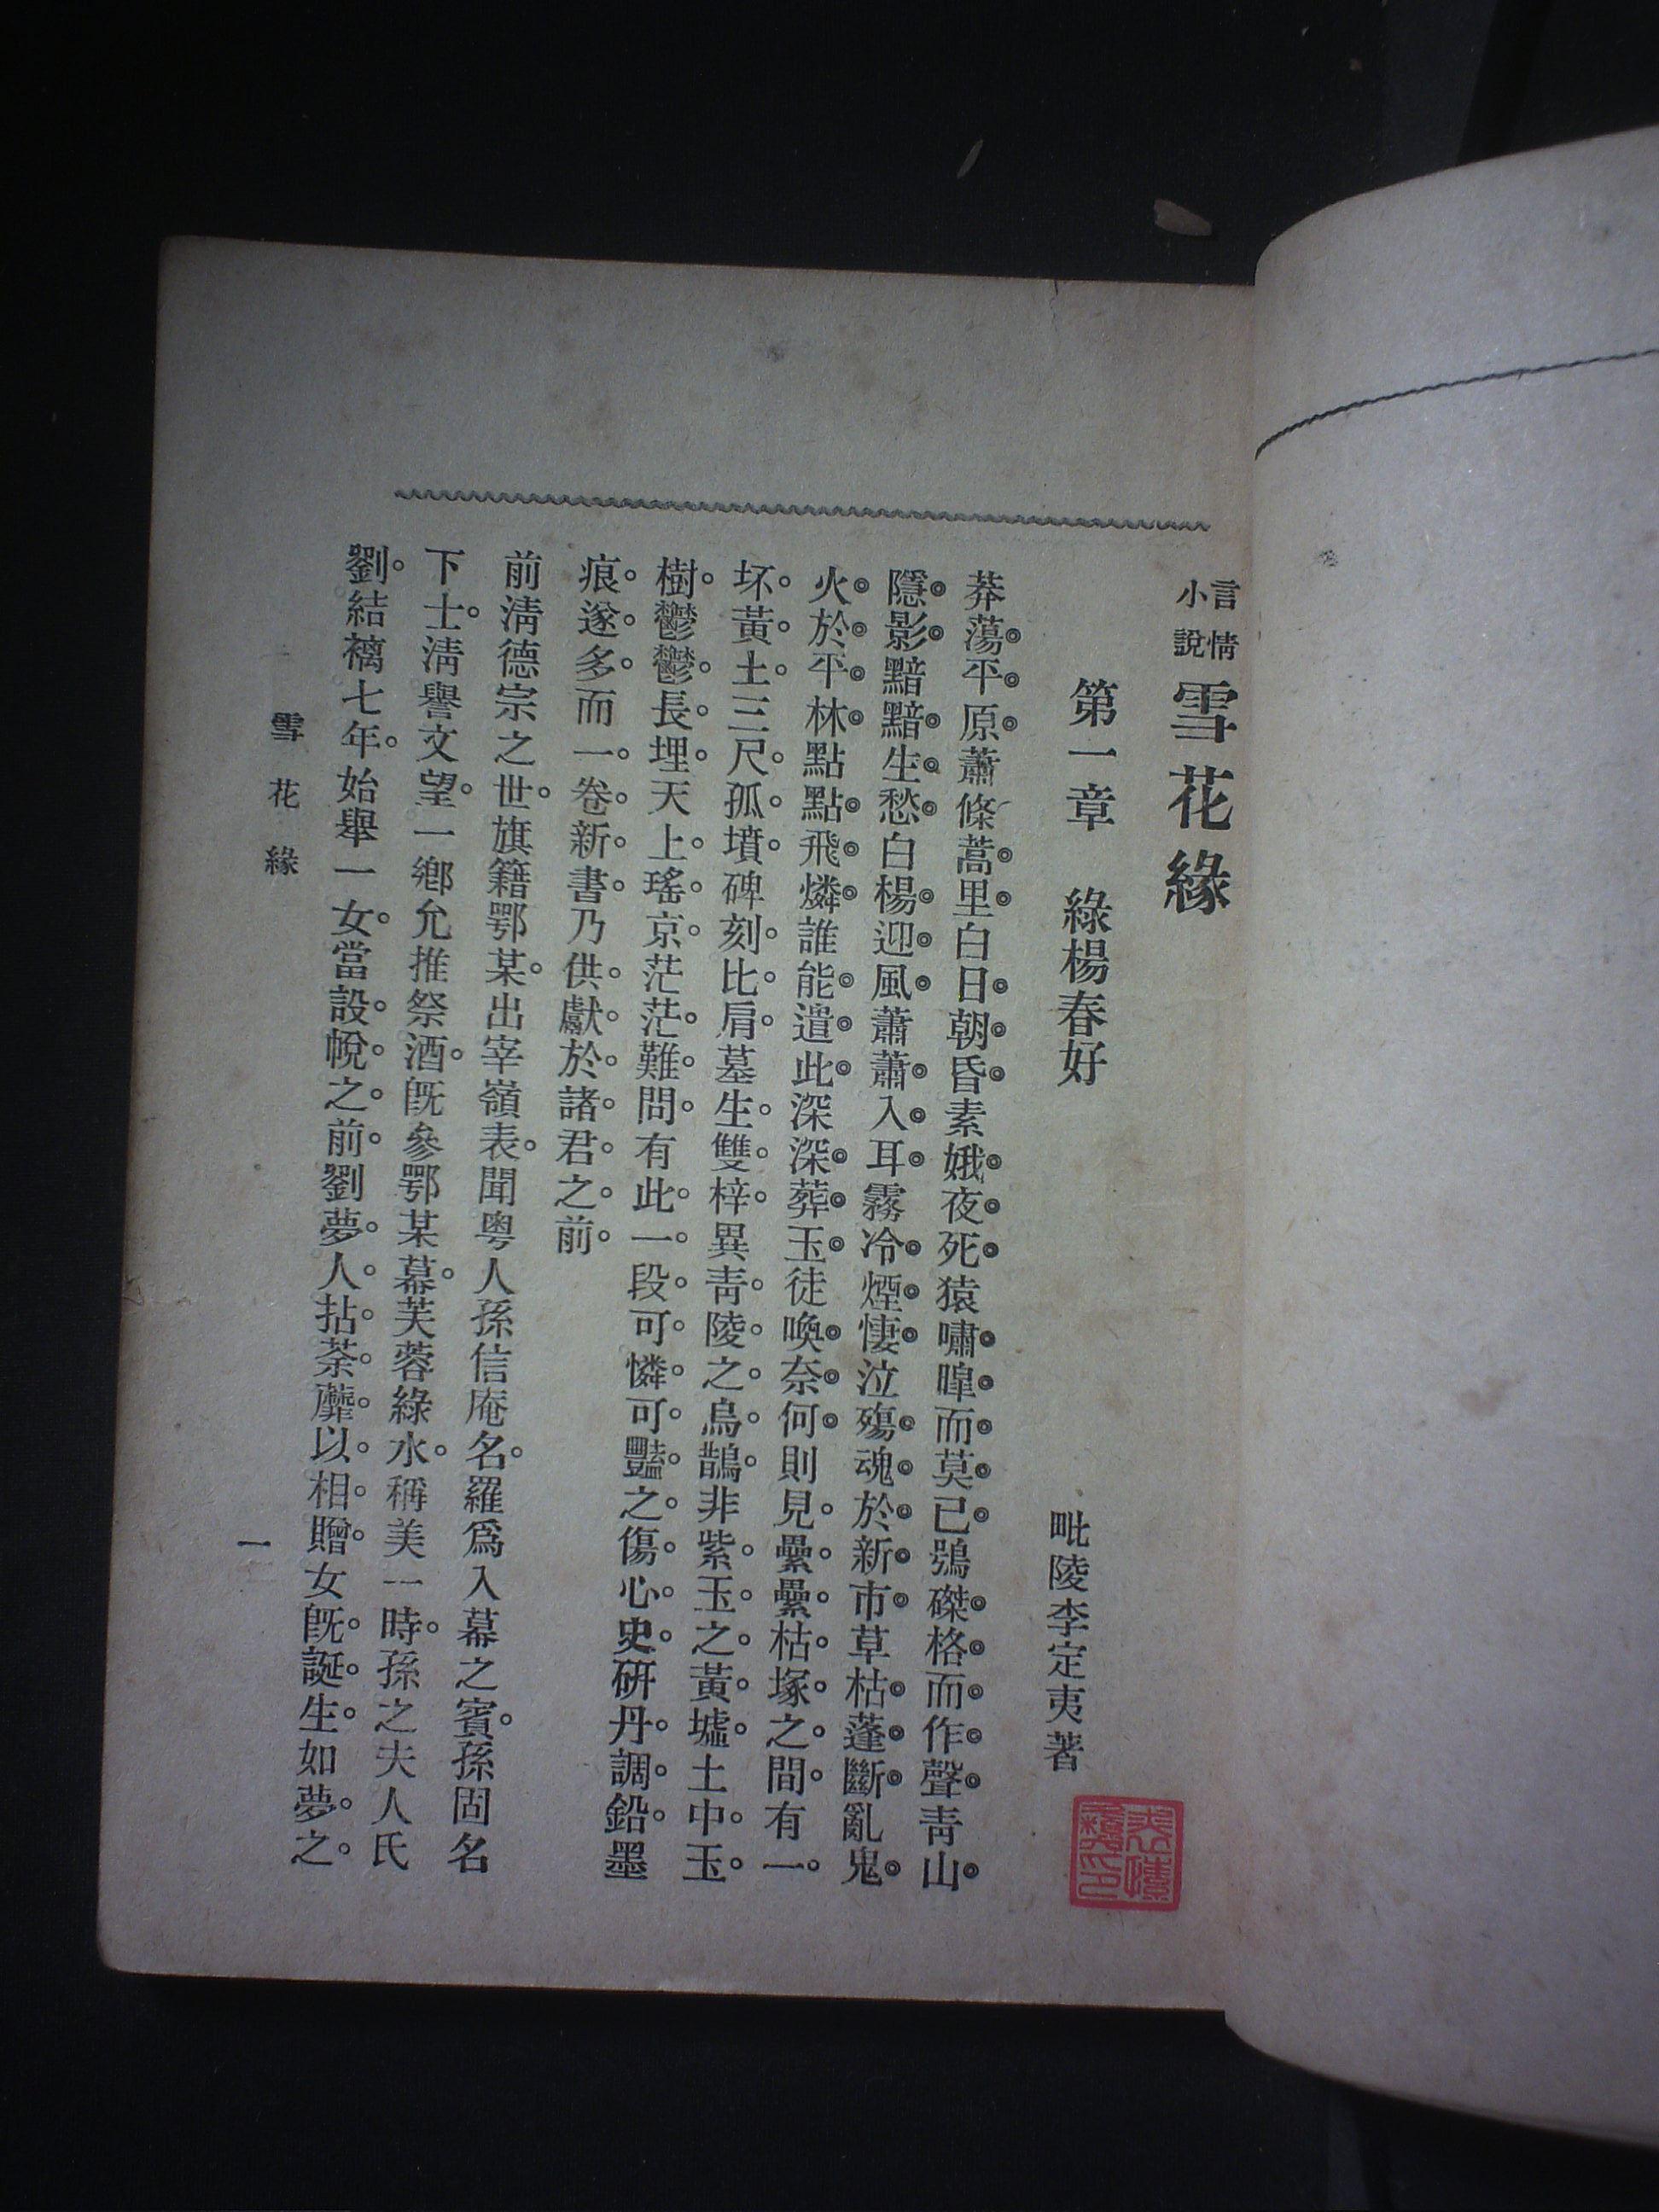 言情小說 雪花緣
第一章 綠楊春好
毗陵李定夷著
莽蕩平原蕭條蒿里白日朝昏素娥夜死猿嘯嘷而莫已鴞磔格而作聲靑山
隱影黯黯生愁白楊迎風蕭蕭入耳霧冷煙悽泣殤魂於新市草枯蓬斷亂鬼
火於平林點點飛燐誰能遣此深深葬玉徒喚奈何則見纍纍枯塚之間有一
坏黃土三尺孤墳碑刻比肩墓生雙梓異靑陵之烏鵲非紫玉之黃墟土中玉
樹鬱鬱長埋天上瑤京茫茫難問有此一段可憐可豔之傷心史硏丹調鉛墨
痕遂多而一卷新書乃供獻於諸君之前
前淸德宗之世旗籍鄂某出宰嶺表聞粵人孫信庵名羅爲入幕之賓孫固名
下士淸譽文望一鄕允推祭酒旣參鄂某幕芙蓉綠水稱美一時孫之夫人氏
劉結褵七年始舉一女當設帨之前劉夢人拈荼蘼以相贈女旣誕生如夢之
雪花緣
一